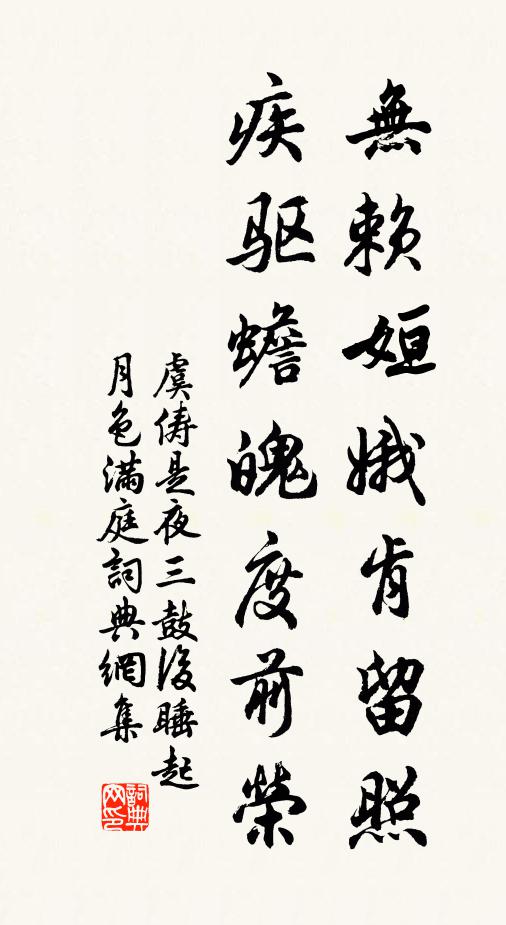 無賴姮娥肯留照
疾驱蟾魄度前榮
虞俦是夜三鼓後睡起
月色滿庭詞典網集
詞典网印